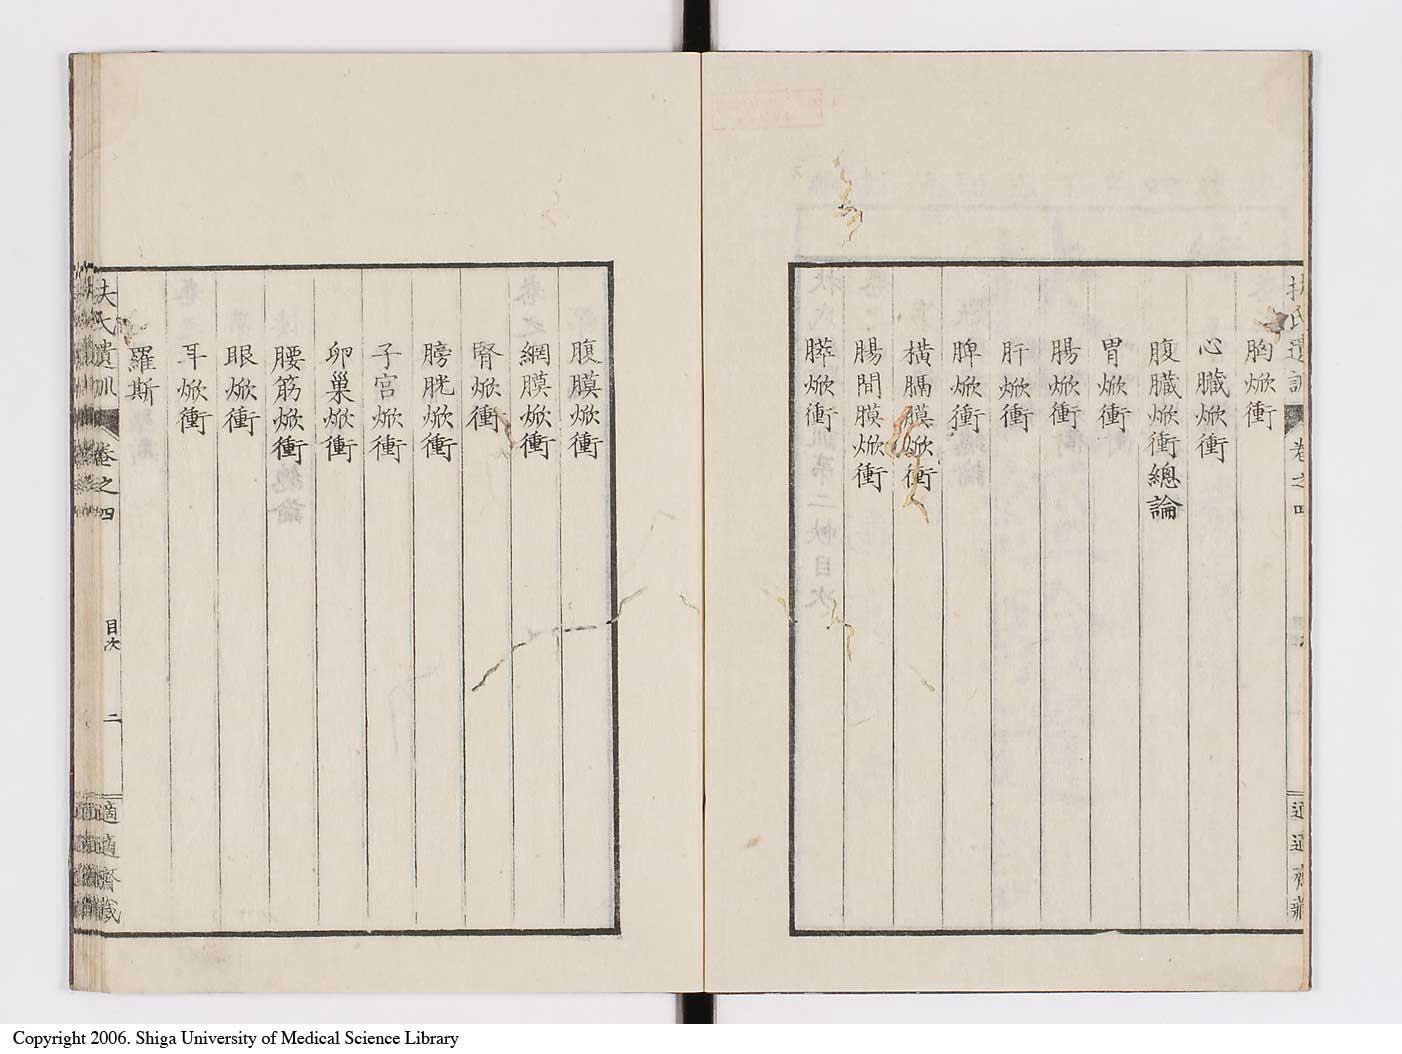 扶氏遺訓 卷之四
適適齊藏
胸焮衝
心臓焮衝
腹臓焮衝總論
胃焮衝
腸焮衝
肝焮衝
脾焮衝
橫膈膜焮衝
腸間膜焮衝
膵焮衝
腹膜焮衝
網膜焮衝
腎焮衝
膀胱焮衝
子宮焮衝
卵巢焮衝
腰筋焮衝
眼焮衝
耳焮衝
羅斯
扶氏遺訓 卷之四 目次 二
適適齊藏
Copyright 2006. Shiga University of Medical Science Library